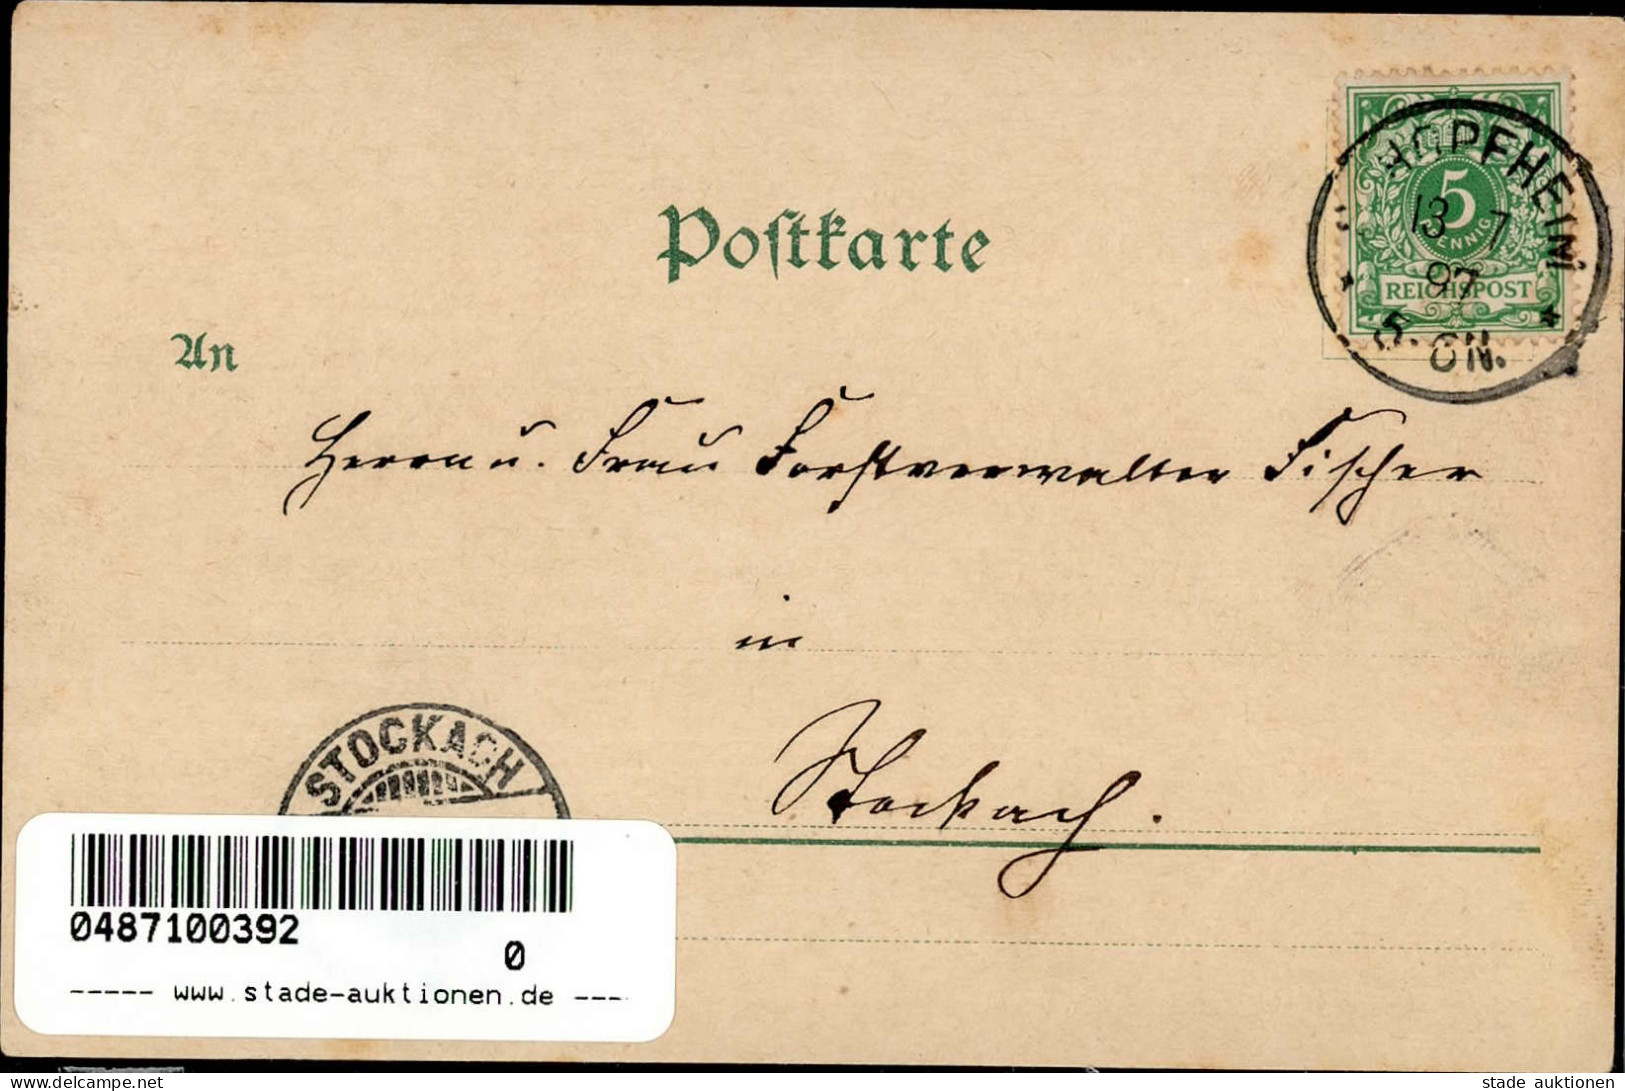 SCHOPFHEIM
5
PFENNIG
REICHSPOST
13 7
97
5-6N.
Postkarte
An
Herrn u. Frau Forstverwalter Fischer
in
Stockach.
STOCKACH
0487100392
0
----- www.stade-auktionen.de ----
www.delcampe.net
stade auktionen